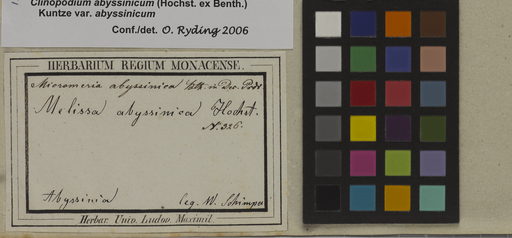 Clinopodium abyssinicum (Hochst. ex Benth.)
Kuntze var. abyssinicum
Conf./det. O. Ryding 2006
HERBARIUM REGIUM MONACENSE.
Micromeria abyssinica
Melissa abyssinica Hochst.
N. 326.
Abyssinia leg. W. Schimper
Herbar. Univ. Ludov. Maximil.